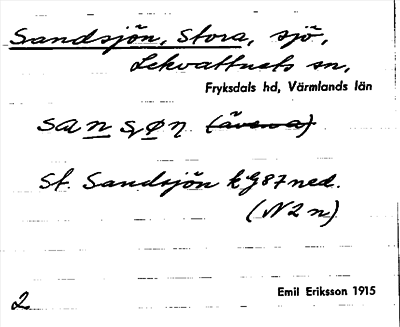 Sandsjön, Stora, sjö,
Lekvattnets sn,
Fryksdals hd, Värmlands län
St. Sandsjön kG87ned.
(N2n)
2.
Emil Eriksson 1915